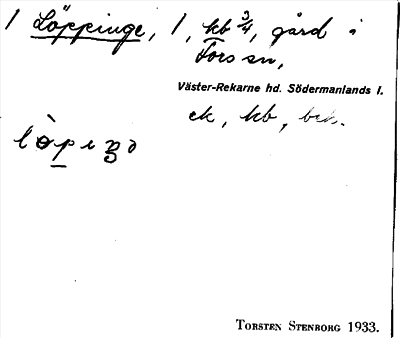 1 Löppinge, 1, kb 3/4, gård i
Fors sn,
Väster-Rekarne hd. Södermanlands l.
ek, kb,
Torsten Stenborg 1933.